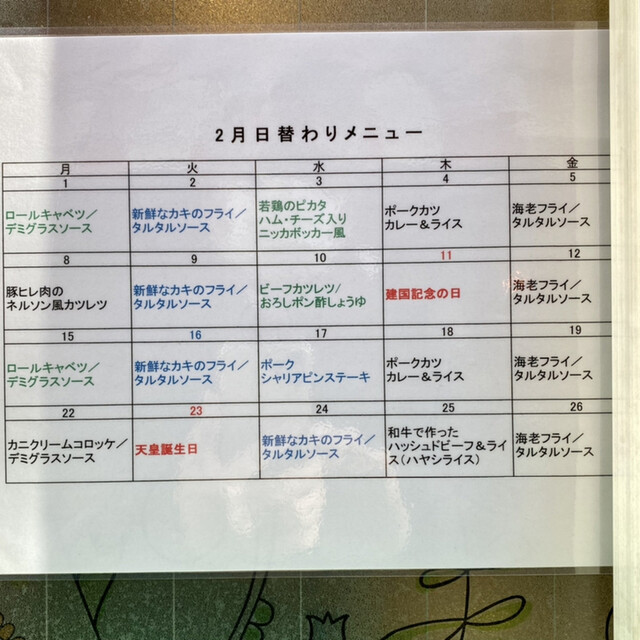 2月日替わりメニュー
月 火 水 木 金
1 2 3 4 5
ロールキャベツ／
デミグラスソース
新鮮なカキのフライ／
タルタルソース
若鶏のピカタ
ハム・チーズ入り
ニッカボッカー風
ポークカツ
カレー＆ライス
海老フライ／
タルタルソース
8 9 10 11 12
豚ヒレ肉の
ネルソン風カツレツ
新鮮なカキのフライ／
タルタルソース
ビーフカツレツ／
おろしポン酢しょうゆ
建国記念の日
海老フライ／
タルタルソース
15 16 17 18 19
ロールキャベツ／
デミグラスソース
新鮮なカキのフライ／
タルタルソース
ポーク
シャリアピンステーキ
ポークカツ
カレー＆ライス
海老フライ／
タルタルソース
22 23 24 25 26
カニクリームコロッケ／
デミグラスソース
天皇誕生日
新鮮なカキのフライ／
タルタルソース
和牛で作った
ハッシュドビーフ＆ライ
ス（ハヤシライス）
海老フライ／
タルタルソース